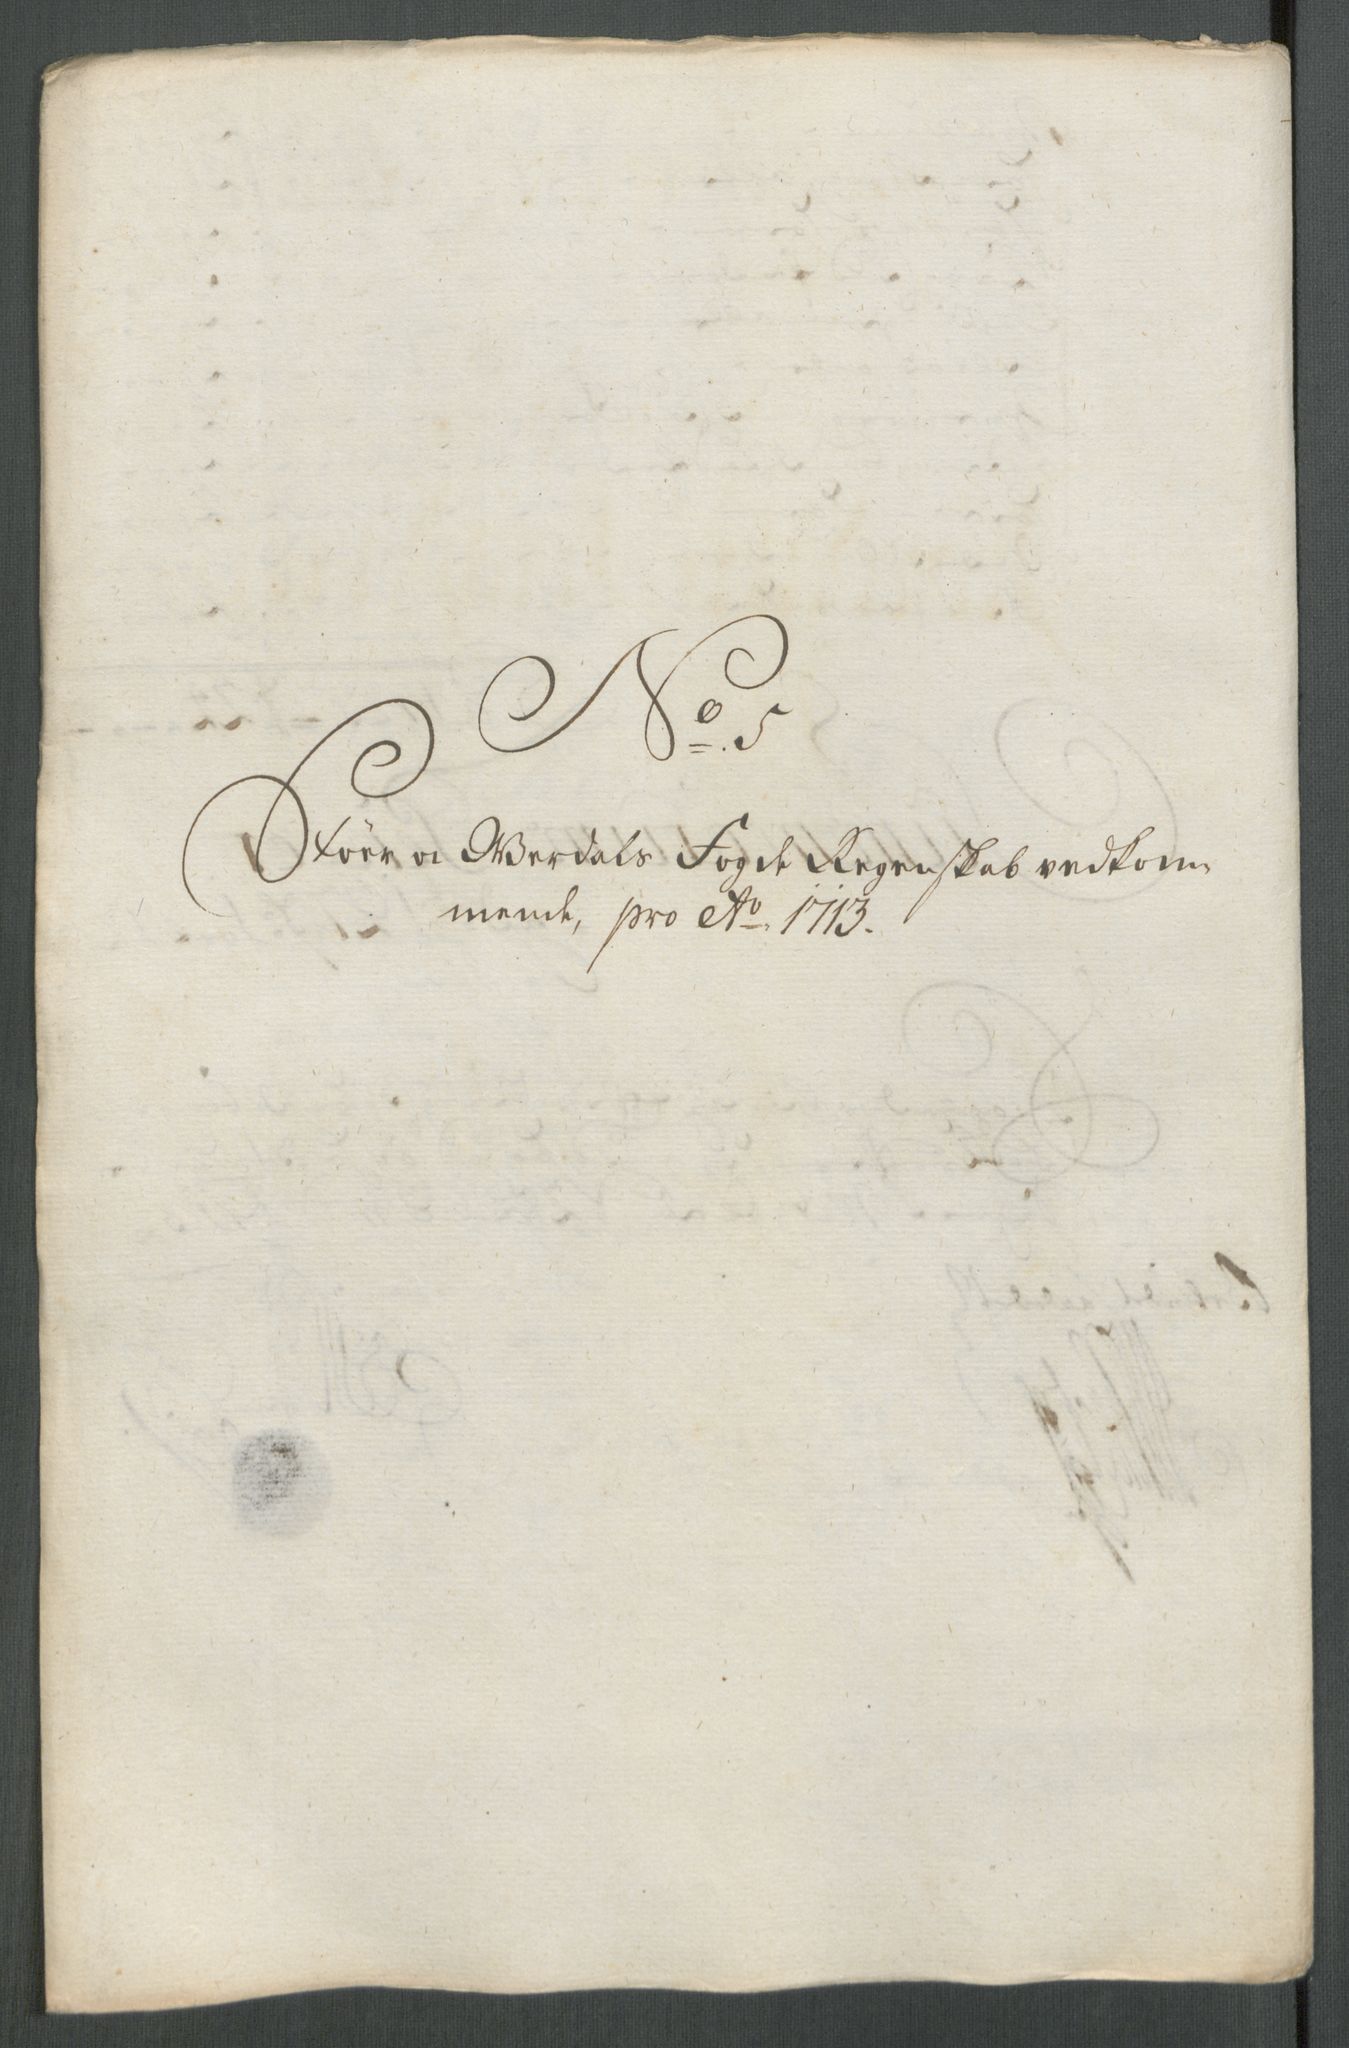 No. 5
Støer oc Werdals Fogde Regenskab vedkom-
mende, pro Ao. 1713.